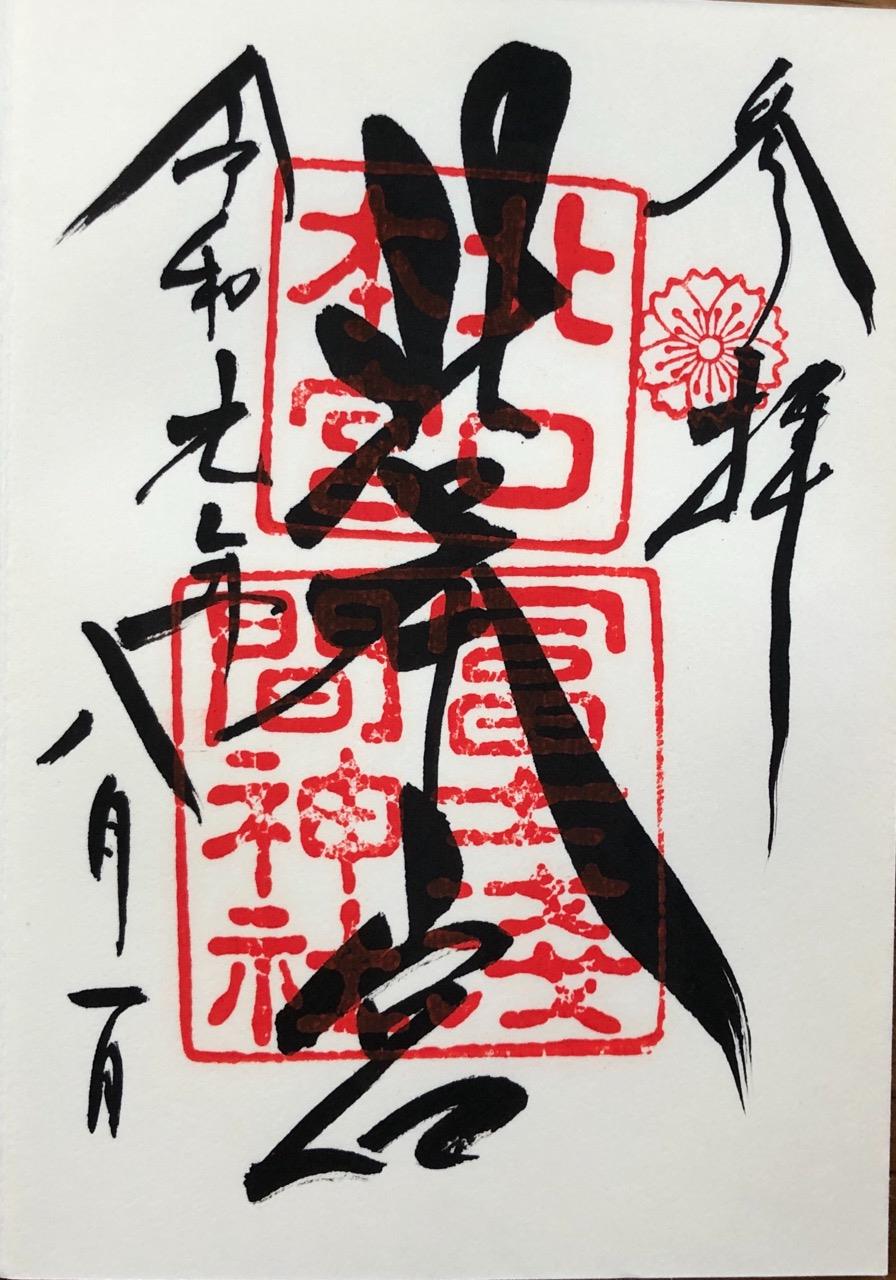 参拝
北口本宮
令和元年八月一日
北口
本宮
冨士淺
間神社